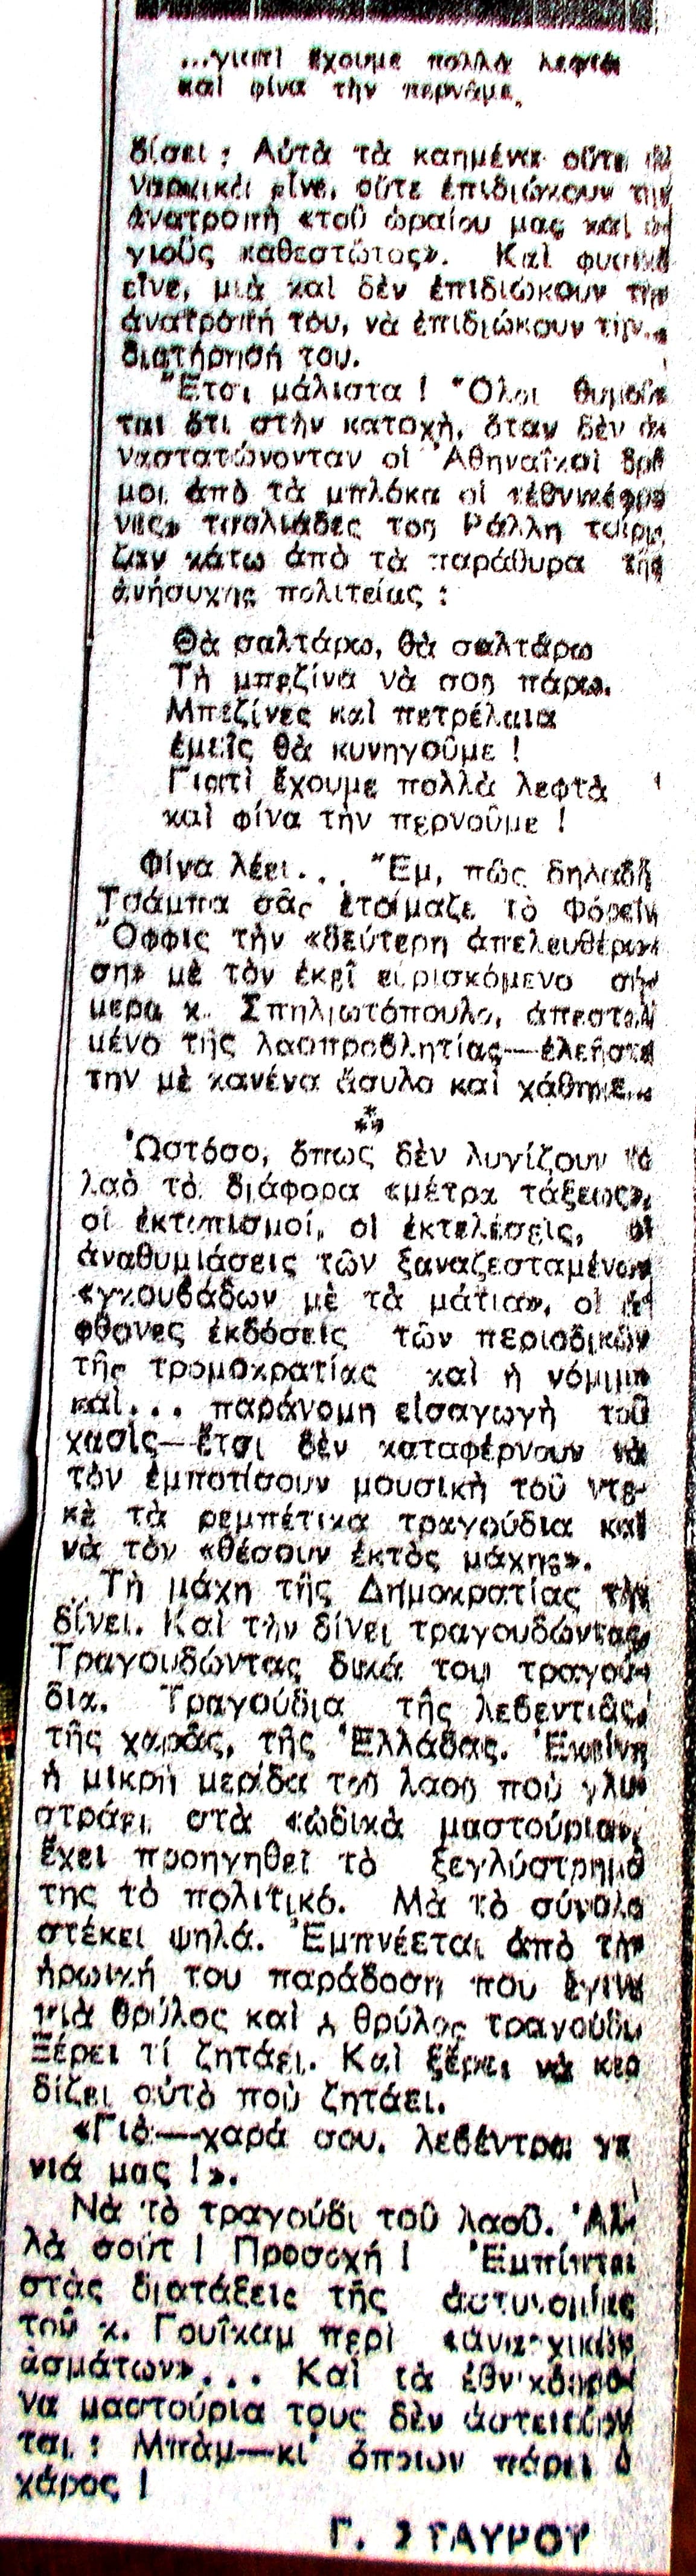 ...γιατὶ ἔχουμε πολλὰ λεφτὰ
καὶ φίνα τὴν περνᾶμε.
δίσει; Αὐτὰ τὰ καημένα οὔτε
ναρχικὰ εἶνε, οὔτε ἐπιδιώκουν τὴν
ἀνατροπὴ «τοῦ ὡραίου μας καὶ ὑ-
γιοῦς καθεστῶτος». Καὶ φυσικὸ
εἶνε, μιὰ καὶ δὲν ἐπιδιώκουν τὴν
ἀνατροπή του, νὰ ἐπιδιώκουν τὴν..
διατήρησή του.
Ἔτσι μάλιστα! Ὅλοι θυμοῦν
ται ὅτι στὴν κατοχὴ, ὅταν δὲν ἀ-
ναστατώνονταν οἱ Ἀθηναϊκοὶ δρό
μοι ἀπὸ τὰ μπλόκα οἱ «ἐθνικόφρο
νες» τσολιάδες του Ράλλη τσίρι
ζαν κάτω ἀπὸ τὰ παράθυρα τῆς
ἀνήσυχης πολιτείας:
Θὰ σαλτάρω, θὰ σαλτάρω
Τὴ μπεζίνα νὰ σου πάρω.
Μπεζίνες καὶ πετρέλαια
ἐμεῖς θὰ κυνηγοῦμε!
Γιατὶ ἔχουμε πολλὰ λεφτὰ
καὶ φίνα τὴν περνοῦμε!
Φίνα λέει... Ἔμ, πῶς δηλαδὴ
Τσάμπα σᾶς ἑτοίμαζε τὸ Φόρεϊν
Ὄφφις τὴν «δεύτερη ἀπελευθέρω-
ση» μὲ τὸν ἐκεῖ εὑρισκόμενο σή-
μερα κ. Σπηλιωτόπουλο, ἀπεσταλ
μένο τῆς λαοπροβλητίας—ἐλεῆστε
την μὲ κανένα ἄσυλο καὶ χάθηκε...
***
Ὡστόσο, ὅπως δὲν λυγίζουν τὸ
λαὸ τὰ διάφορα «μέτρα τάξεως»,
οἱ ἐκτοπισμοί, οἱ ἐκτελέσεις, οἱ
ἀναθυμιάσεις τῶν ξαναζεσταμένων
«γκουβάδων μὲ τὰ μάτια», οἱ ἄ-
φθονες ἐκδόσεις τῶν περιοδικῶν
τῆς τρομοκρατίας καὶ ἡ νόμιμη
καὶ... παράνομη εἰσαγωγὴ τοῦ
χασίς—ἔτσι δὲν καταφέρνουν νὰ
τὸν ἐμποτίσουν μουσικὴ τοῦ ντε-
κὲ τὰ ρεμπέτικα τραγούδια καὶ
νὰ τὸν «θέσουν ἐκτὸς μάχης».
Τὴ μάχη τῆς Δημοκρατίας τὴν
δίνει. Καὶ τὴν δίνει τραγουδώντας.
Τραγουδώντας δικά του τραγού-
δια. Τραγούδια τῆς λεβεντιᾶς,
τῆς χαρᾶς, τῆς Ἑλλάδας. Ἐκείνη
ἡ μικρὴ μερίδα του λαου ποὺ γλυ-
στράει στὰ «ὠδικὰ μαστούρια»,
ἔχει προηγηθεῖ τὸ ξεγλύστρημά
της τὸ πολιτικό. Μὰ τὸ σύνολο
στέκει ψηλά. Ἐμπνέεται ἀπὸ τὴν
ἡρωική του παράδοση που ἔγινε
πιὰ θρύλος καὶ ὁ θρύλος τραγούδι.
Ξέρει τί ζητάει. Καὶ ξέρει νὰ κερ
δίζει αὐτὸ ποὺ ζητάει.
«Γιὰ—χαρά σου, λεβέντρα γε
νιά μας!».
Νὰ τὸ τραγούδι τοῦ λαοῦ. Ἀλ-
λὰ σούτ! Προσοχή! Ἐμπίπτει
στὰς διατάξεις τῆς ἀστυνομίας
τοῦ κ. Γουΐκαμ περὶ «ἀναρχικῶν
ἀσμάτων»... Καὶ τὰ ἐθνικόφρο-
να μαστούρια τους δὲν ἀστειεύον
ται: Μπὰμ—κι' ὅποιον πάρει ὁ
χάρος!
Γ. ΣΤΑΥΡΟΥ